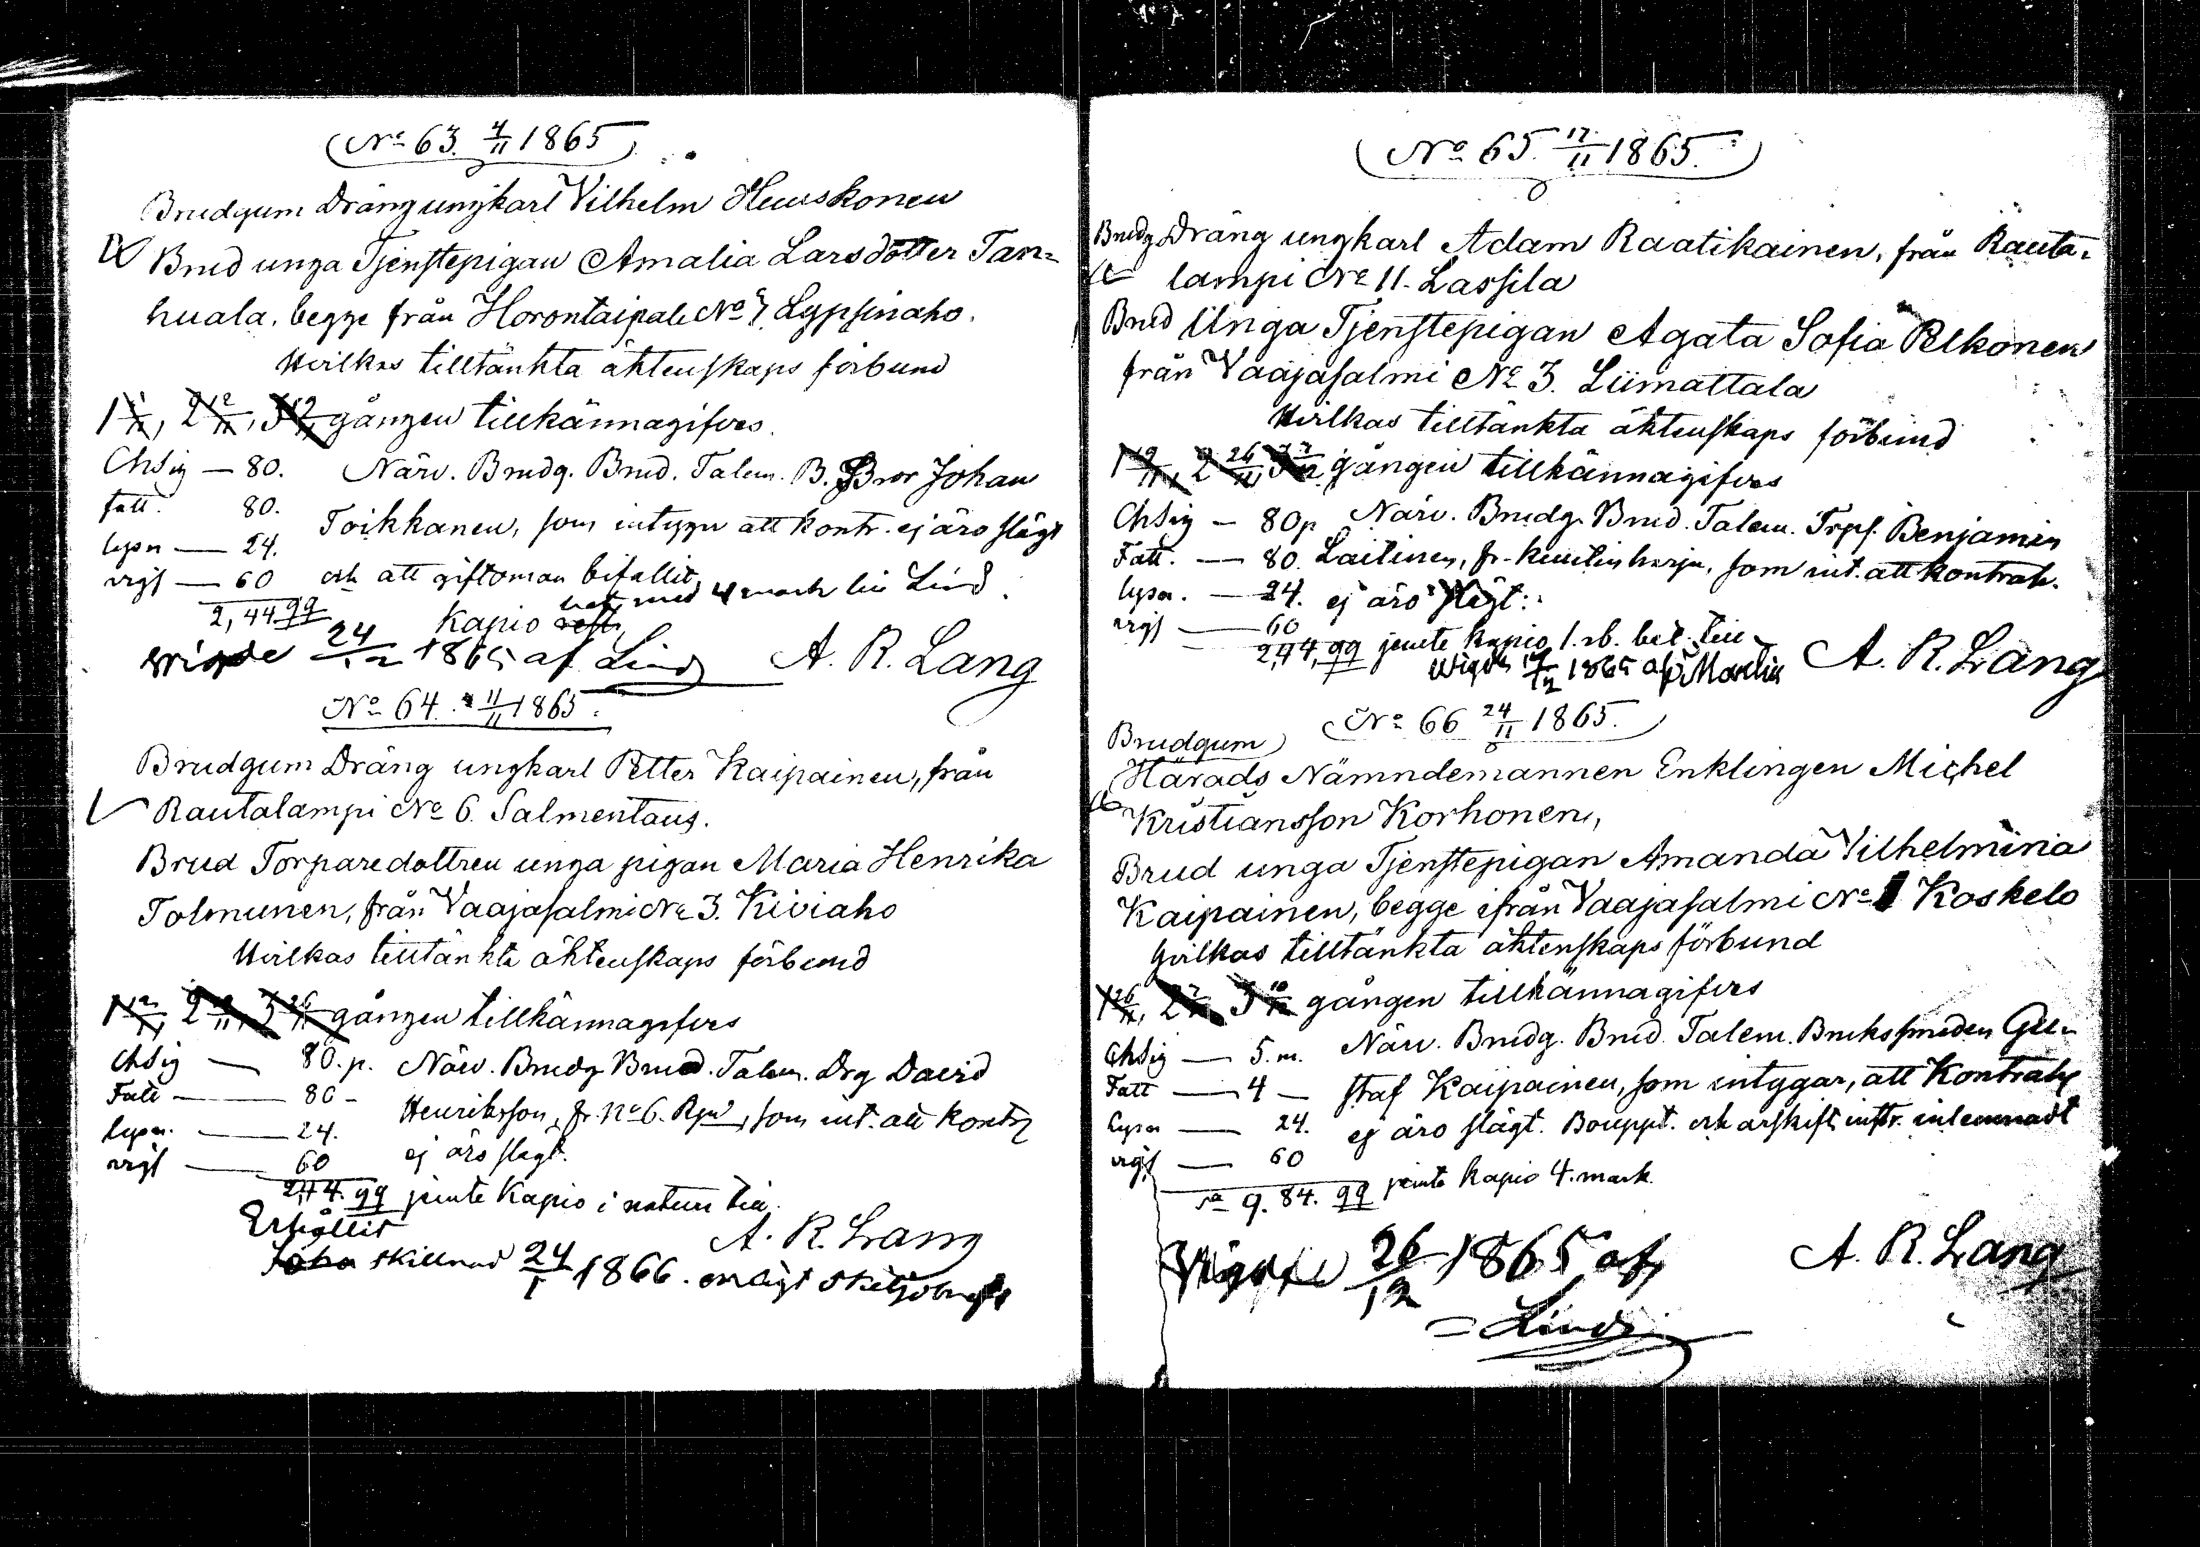 No 63. 4/11 1865
Brudgum Dräng ungkarl Vilhelm Heiskonen
Brud unga Tjenstepigan Amalia Larsdotter Tan=
huala, begge från Horontaipale No 7 Lypsinaho.
Hvilkas tilltänkta äktenskaps förbund
1 5/11, 2 12/11, 3 19/11 gången tillkännagifves.
ChSig — 80. Närv. Brudg. Brud. Talem. B. Bror Johan
fatt. 80. Toikkanen, som intygar att kontr. ej äro slägt
lysn — 24. och att giftoman bifallit,
vigs — 60 bet. med 4 mark till Lind.
2,44 Kapio
vigde 24/12 1865 af Lind A. R. Lang
No 64. 11/11 1865.
Brudgum Dräng ungkarl Petter Kaipainen, från
Rautalampi No 6. Salmentaus.
Brud Torparedottren unga pigan Maria Henrika
Tolmunen, från Vaajasalmi No 3. Kiviaho
Hvilkas tilltänkta äktenskaps förbund
1 12/11, 2 19/11, 3 26/11 gången tillkännagifves
ChSig — 80. p. Närv. Brudg Brud. Talem. Drg David
Fatt — 80 - Henriksson, fr. No 6. som int. att kontr
lysn. — 24. ej äro slägt.
vigs — 60
2,44. jemte Kapio i natura
Erhållit A. R. Lang
skillnad 24/1 1866. enligt skiljobref
No 65. 17/11 1865.
Brudg. Dräng ungkarl Adam Raatikainen, från Rauta=
lampi No 11. Lassila
Brud Unga Tjenstepigan Agata Sofia Pelkonen
från Vaajasalmi No 3. Liimattala
Hvilkas tilltänkta äktenskaps förbund
1 19/11, 2 26/11, 3 3/12 gången tillkännagifves
ChSig — 80 p Närv. Brudg. Brud. Talem. Trps. Benjamin
Fatt. — 80. Laitinen, fr. som int. att kontrah.
lysn. — 24. ej äro slägt.
vigs — 60
2,44, jemte kapio 1. rb. bet.
1865 af A. R. Lang
No 66 24/11 1865.
Brudgum
Härads Nämndemannen Enklingen Michel
Kristiansson Korhonen,
Brud unga Tjenstepigan Amanda Vilhelmina
Kaipainen, begge ifrån Vaajasalmi No 1 Koskelo
Hvilkas tilltänkta äktenskaps förbund
1 26/11, 2 3/12, 3 10/12 gången tillkännagifves
ChSig — 5. m. Närv. Brudg. Brud. Talem. Bruksmeden Gu-
Fatt — 4 — staf Kaipainen, som intygar, att Kontrah
lysn — 24. ej äro slägt. Bouppt. och arfskift. instr. inlemnadt
vigs — 60
Sa 9. 84. jemte Kapio 4. mark.
Vigde 26/12 1865 af A. R. Lang
Lind